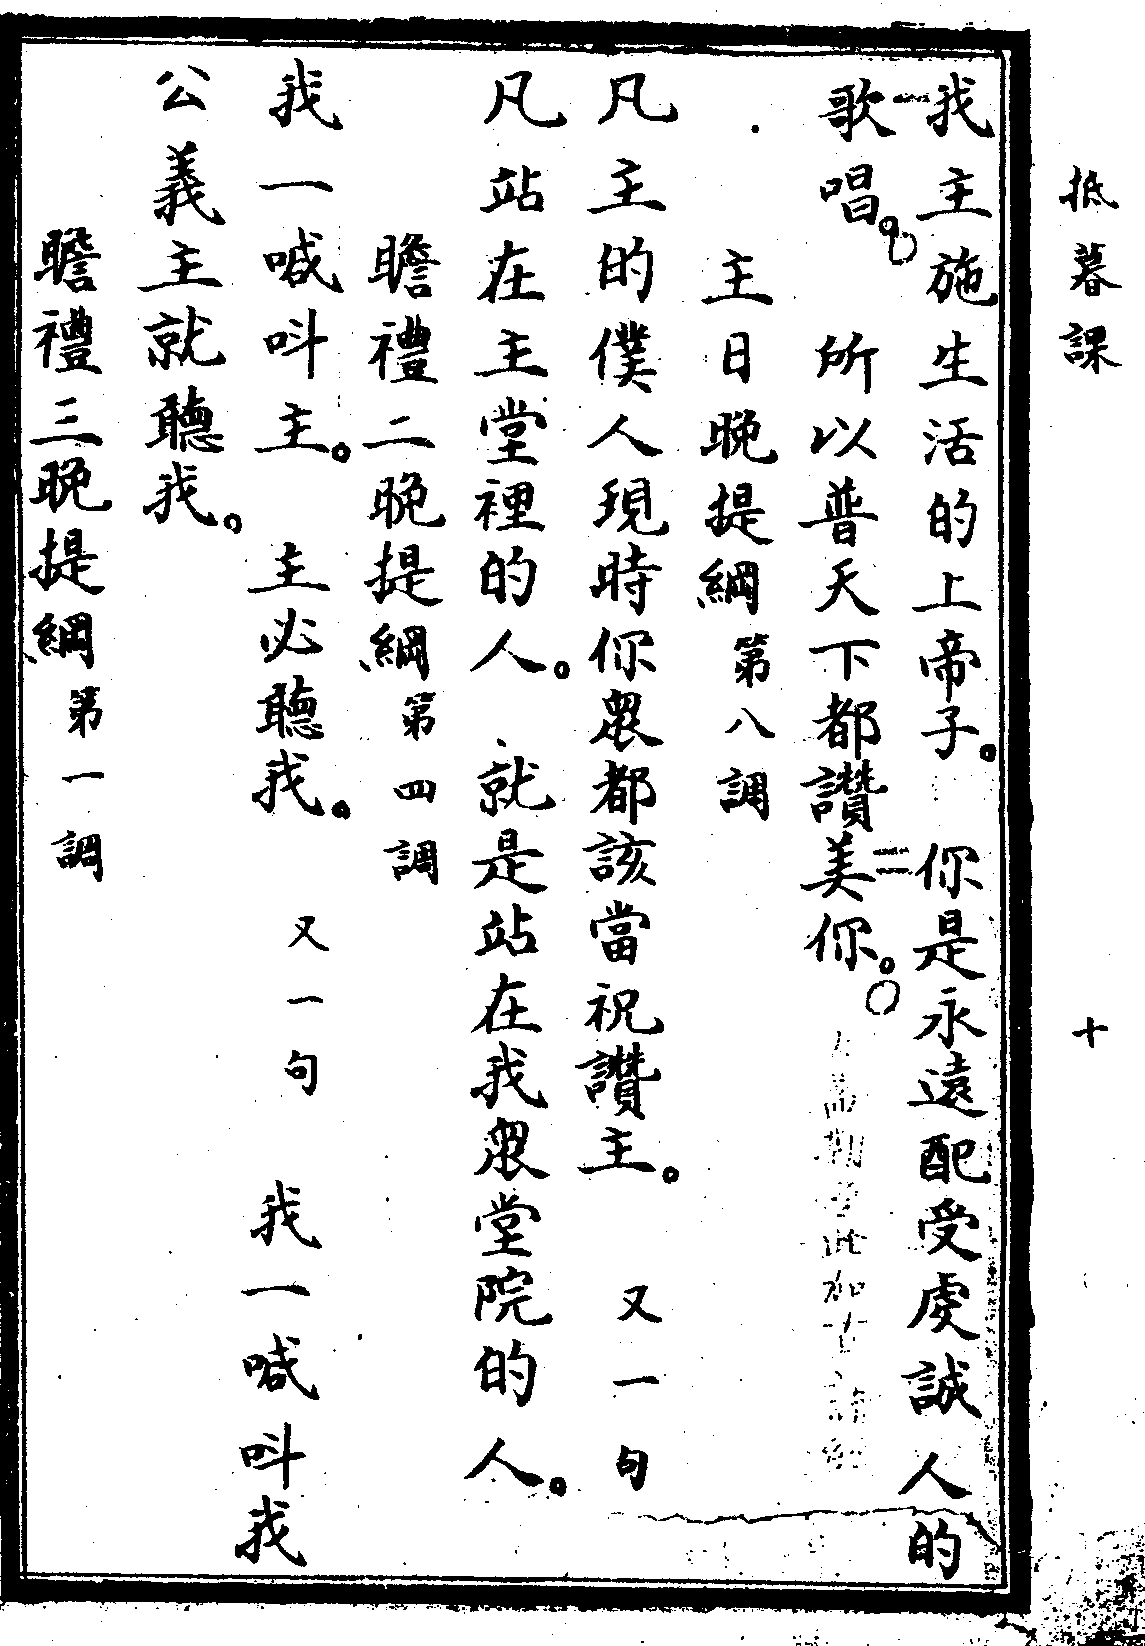 抵暮課 十
我主施生活的上帝子。 你是永遠配受虔誠人的
歌唱。 所以普天下都讚美你。
主日晚提綱 第八調
凡主的僕人現時你眾都該當祝讚主。 又一句
凡站在主堂裡的人。 就是站在我眾堂院的人。
瞻禮二晚提綱 第四調
我一喊呌主。 主必聽我。 又一句 我一喊呌我
公義主就聽我。
瞻禮三晚提綱 第一調